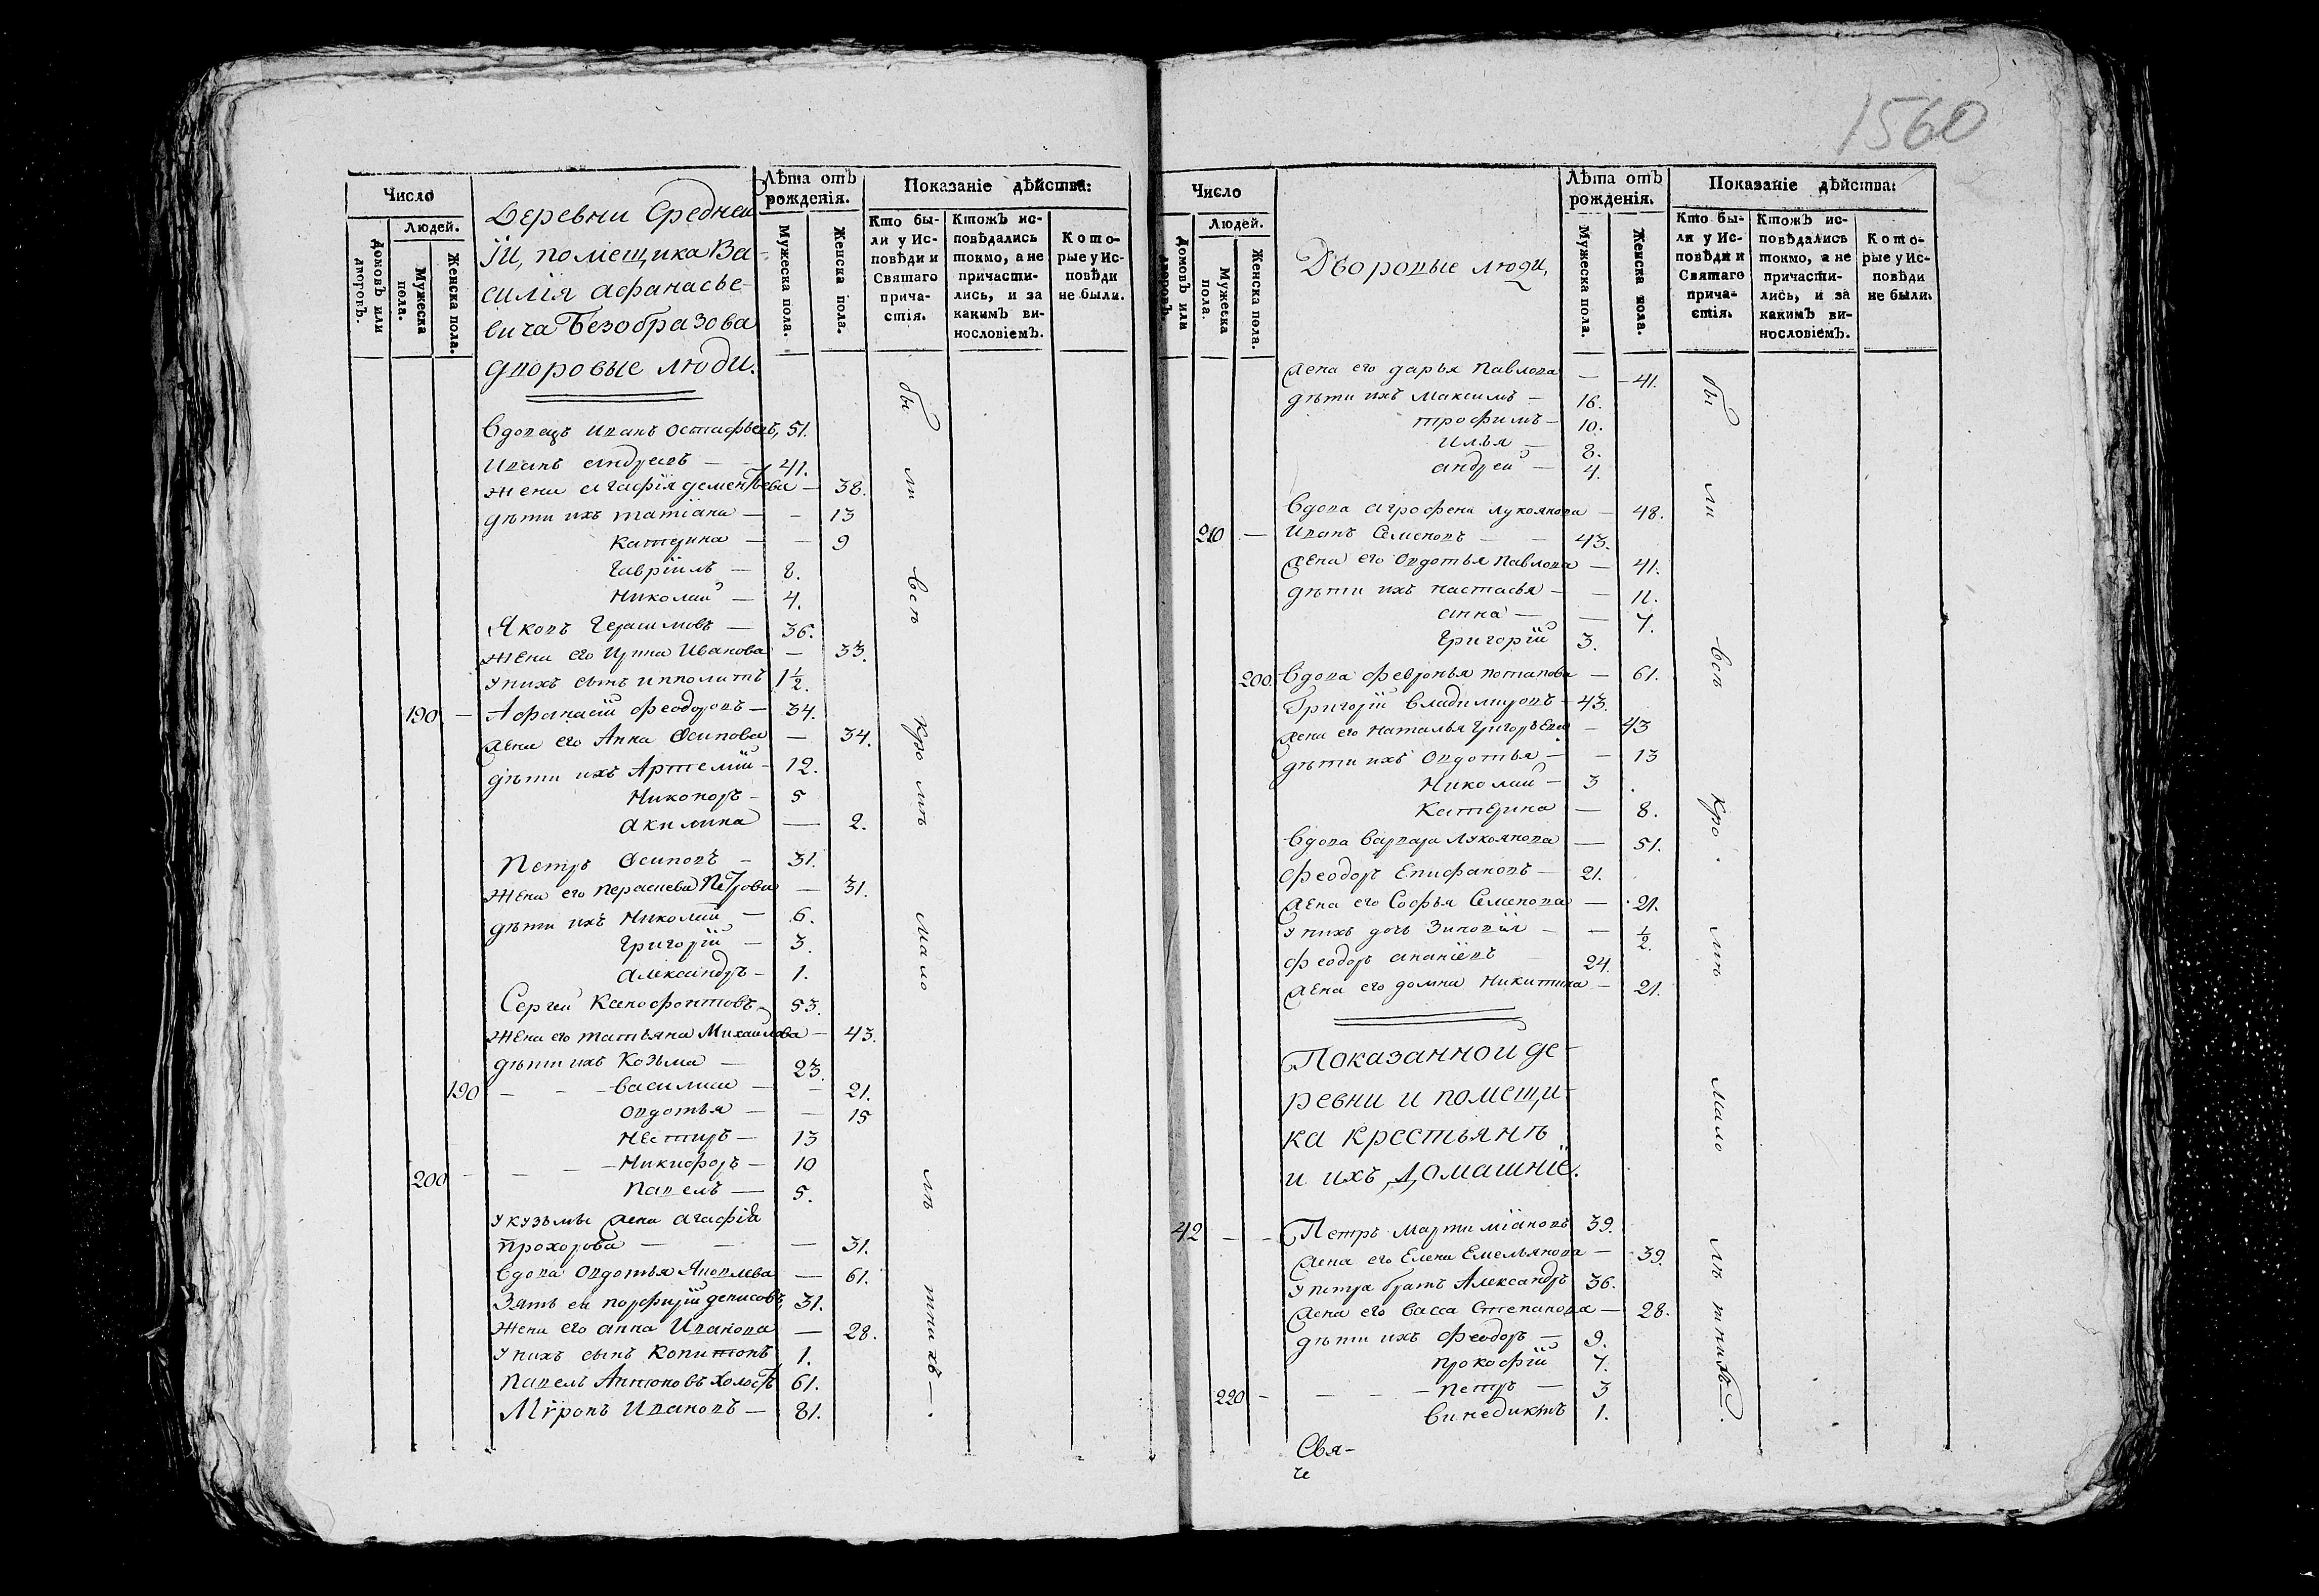 1560
Число
Людей.
Домовъ или дворовъ.
Мужеска пола.
Женска пола.
Деревни Средней
іи, помещика Ва
силія афанасье-
вича Безобразова
дворовые люди.
Лѣта отъ рожденія.
Мужеска пола.
Женска пола.
Показаніе дѣйства:
Кто бы-
ли у Ис-
повѣди и
Святаго
прича-
стія.
Ктожъ ис-
повѣдались
токмо, а не
причасти-
лись, и за
какимъ ви-
нословіемъ.
Кото-
рые у Ис-
повѣди
не были.
Вдовецъ Иванъ Остафьевъ, 51.
Иванъ андреевъ — 41.
жена агафія дементьева — 38.
дѣти ихъ татіана — — 13
Катерина — — 9
Гавріилъ — 8.
Николай — 4.
Яковъ Герасимовъ — 36.
жена его Ирина Иванова — 33.
у нихъ сынъ ипполитъ 1 1/2.
190 — Афанасій Феодоровъ — 34.
жена его Анна Осипова — 34.
дѣти ихъ Артемій — 12.
Никоноръ — 5
акилина — 2.
Петръ Осиповъ — 31.
жена его Парасиева Петрова — 31.
дѣти ихъ Николай — 6.
Григорій — 3.
александръ — 1.
Сергей Ксенофонтовъ — 53.
жена его татьяна Михаилова — 43.
дѣти ихъ Козьма — 23.
190 — — — Василиса — — 21.
овдотья — — 15
Нестиръ — 13
200 — — — Никифоръ — 10
павелъ — 5.
у кузьмы жена агафія
прохорова — — — 31.
Вдова овдотья Яковлева — 61.
Зять ея порфирій денисовъ, 31.
жена его анна Иванова — 28.
у нихъ сынъ Капитонъ 1.
павелъ Антоновъ холостъ 61.
Миронъ Ивановъ — 81.
бы ли всѣ кро мѣ мало лѣ тнихъ —.
Число
Людей.
Домовъ или дворовъ.
Мужеска пола.
Женска пола.
Дворовые люди,
Лѣта отъ рожденія.
Мужеска пола.
Женска пола.
Показаніе дѣйства:
Кто бы-
ли у Ис-
повѣди и
Святаго
прича-
стія.
Ктожъ ис-
повѣдались
токмо, а не
причасти-
лись, и за
какимъ ви-
нословіемъ.
Кото-
рые у Ис-
повѣди
не были.
жена его дарья Павлова — — 41.
дѣти ихъ Максимъ — 16.
трофимъ — 10.
илья — 8.
андрей — 4.
Вдова агрофена лукоянова — 48.
210 — Иванъ Семеновъ — — 43.
жена его овдотья Павлова — 41.
дѣти ихъ настасья — — 11.
анна — — 7.
Григорій 3.
200. Вдова февронья потапова — 61.
Григорій Владимировъ — 43.
жена его Наталья Григорьева — 43
дѣти ихъ овдотья — — 13
Николай — 3
Катерина — 8.
Вдова Варвара Лукоянова — 51.
Феодоръ Епифановъ — 21.
жена его Софья Семенова — 21.
у нихъ дочь Зиновія — — 1/2.
Феодоръ ананіевъ 24.
жена его домна Никитина — 21.
Показанной де-
ревни и помещи-
ка крестьянѣ
и ихъ, домашніе.
42 — — Петръ Мартиміановъ 39.
жена его Елена Емельянова — 39.
у петра братъ Александръ 36.
жена его Васса Степанова — 28.
дѣти ихъ феодоръ — 9.
прокофій 7.
220 — — — — петръ — 3
Винедиктъ 1.
бы ли всѣ кро. мѣ. мало лѣ тнихъ —.
Свя-
че